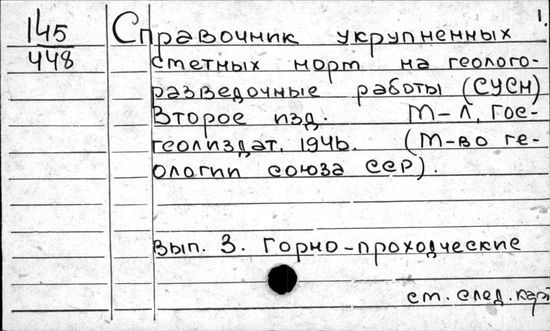 1.
145
448
Справочник укрупненных
сметных норм на геолого-
разведочные работы (СУСН)
Второе изд. М-Л, Гос-
геолиздат, 1946. (М-во ге-
ологии союза ССР).
Вып. 3. Горно-проходческие
см. след. карт